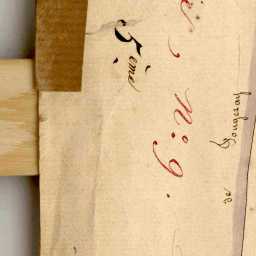 5ème
N.º 9.
de Fougeray